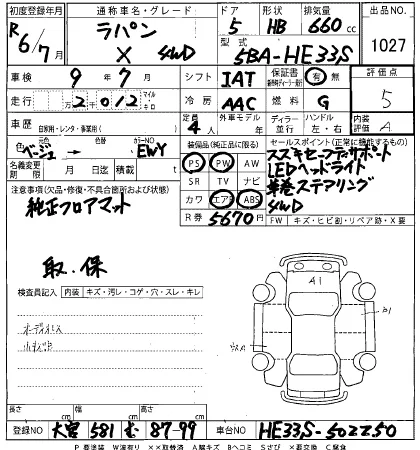 初度登録年月 通称車名・グレード ドア 形状 排気量 出品NO
R6/7月 ラパン X 4WD 5 HB 660cc 1027
型式 5BA-HE33S
車検 9年7月 シフト IAT 保証書 有 無 評価点
走行 2万2千012 マイル キロ 冷房 AAC 燃料 G 5
車歴 自家用・レンタ・事業用( ) 定員 4人 外車モデル 年 ディーラー 並行 ハンドル 左・右 内装評価 A
色 ベージュ → 色替 カラーNO EWY
装備品(純正品に限る) セールスポイント(正常に機能する)
名義変更期限 月 日迄 積載 t
PS PW AW
SR TV ナビ
カワ エアB ABS
R券 5670円
スズキセーフティサポート
LEDヘッドライト
革巻ステアリング
4WD
注意事項(欠品・修復・不具合箇所および状態)
純正フロアマット
FW キズ・ヒビ割・リペア跡・X要
取・保
検査員記入 内装 キズ・汚レ・コゲ・穴・スレ・キレ
オーディオレス
A1
B1
長さ cm 幅 cm 高さ cm
登録NO 大宮 581 む 87-99 車台NO HE33S-502250
P要塗装 W波有り ××取替済 A線キズ Bヘコミ Sさび ×要交換 C腐食